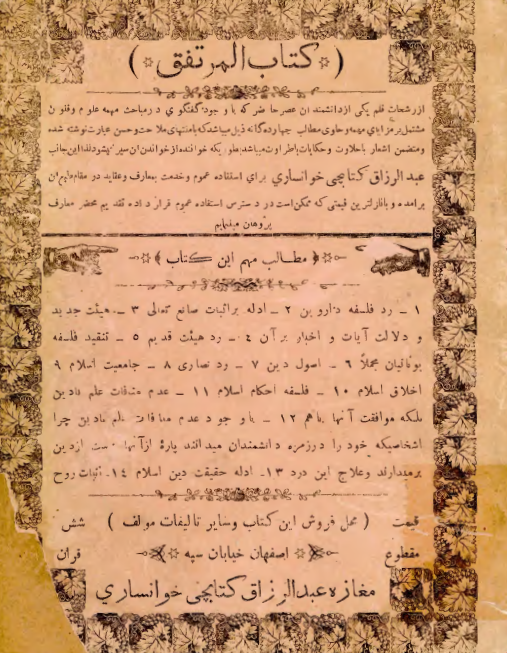 ( * كتاب المرتفق * )
از رشحات قلم يكى از دانشمندان عصر حاضر كه با وجود گفتگوى در مباحث مهمه علوم و فنون
مشتمل بر مزاياى مهمه و حاوى مطالب چهارده گانه ذيل ميباشد كه با منتهاى ملاحت و حسن عبارت نوشته شده
و متضمن اشعار با حلاوت و حكايات با طراوت ميباشد بطوريكه خواننده از خواندن آن سير نميشود لذا اينجانب
عبد الرزاق كتابچى خوانسارى براى استفاده عموم و خدمت بمعارف و عقايد در مقام طبع آن
برآمده و با نازلترين قيمتى كه ممكن است در دسترس استفاده عموم قرار داده تقديم محضر معارف
پژوهان مينمايم
* ( مطالب مهم اين كتاب ) *
۱ ـ رد فلسفه داروين ۲ ـ ادله براثبات صانع تعالى ۳ ـ هيئت جديد
و دلالت آيات و اخبار بر آن ٤ ـ رد هيئت قديم ٥ ـ تنقيد فلسفه
يونانيان مجملاً ٦ ـ اصول دين ۷ ـ رد نصارى ۸ ـ جامعيت اسلام ۹
اخلاق اسلام ۱۰ ـ فلسفه احكام اسلام ۱۱ ـ عدم منافات علم بادين
بلكه موافقت آنها باهم ۱۲ ـ با وجود عدم منافات علم بادين چرا
اشخاصيكه خود را در زمره دانشمندان ميدانند پارهٔ از آنها دست ازدين
برميدارند وعلاج اين درد ۱۳ ـ ادله حقيقت دين اسلام ۱٤ ـ اثبات روح
قيمت ( محل فروش اين كتاب وساير تاليفات مولف ) شش
مقطوع * اصفهان خيابان سپه * قران
مغازه عبد الرزاق كتابچى خوانسارى